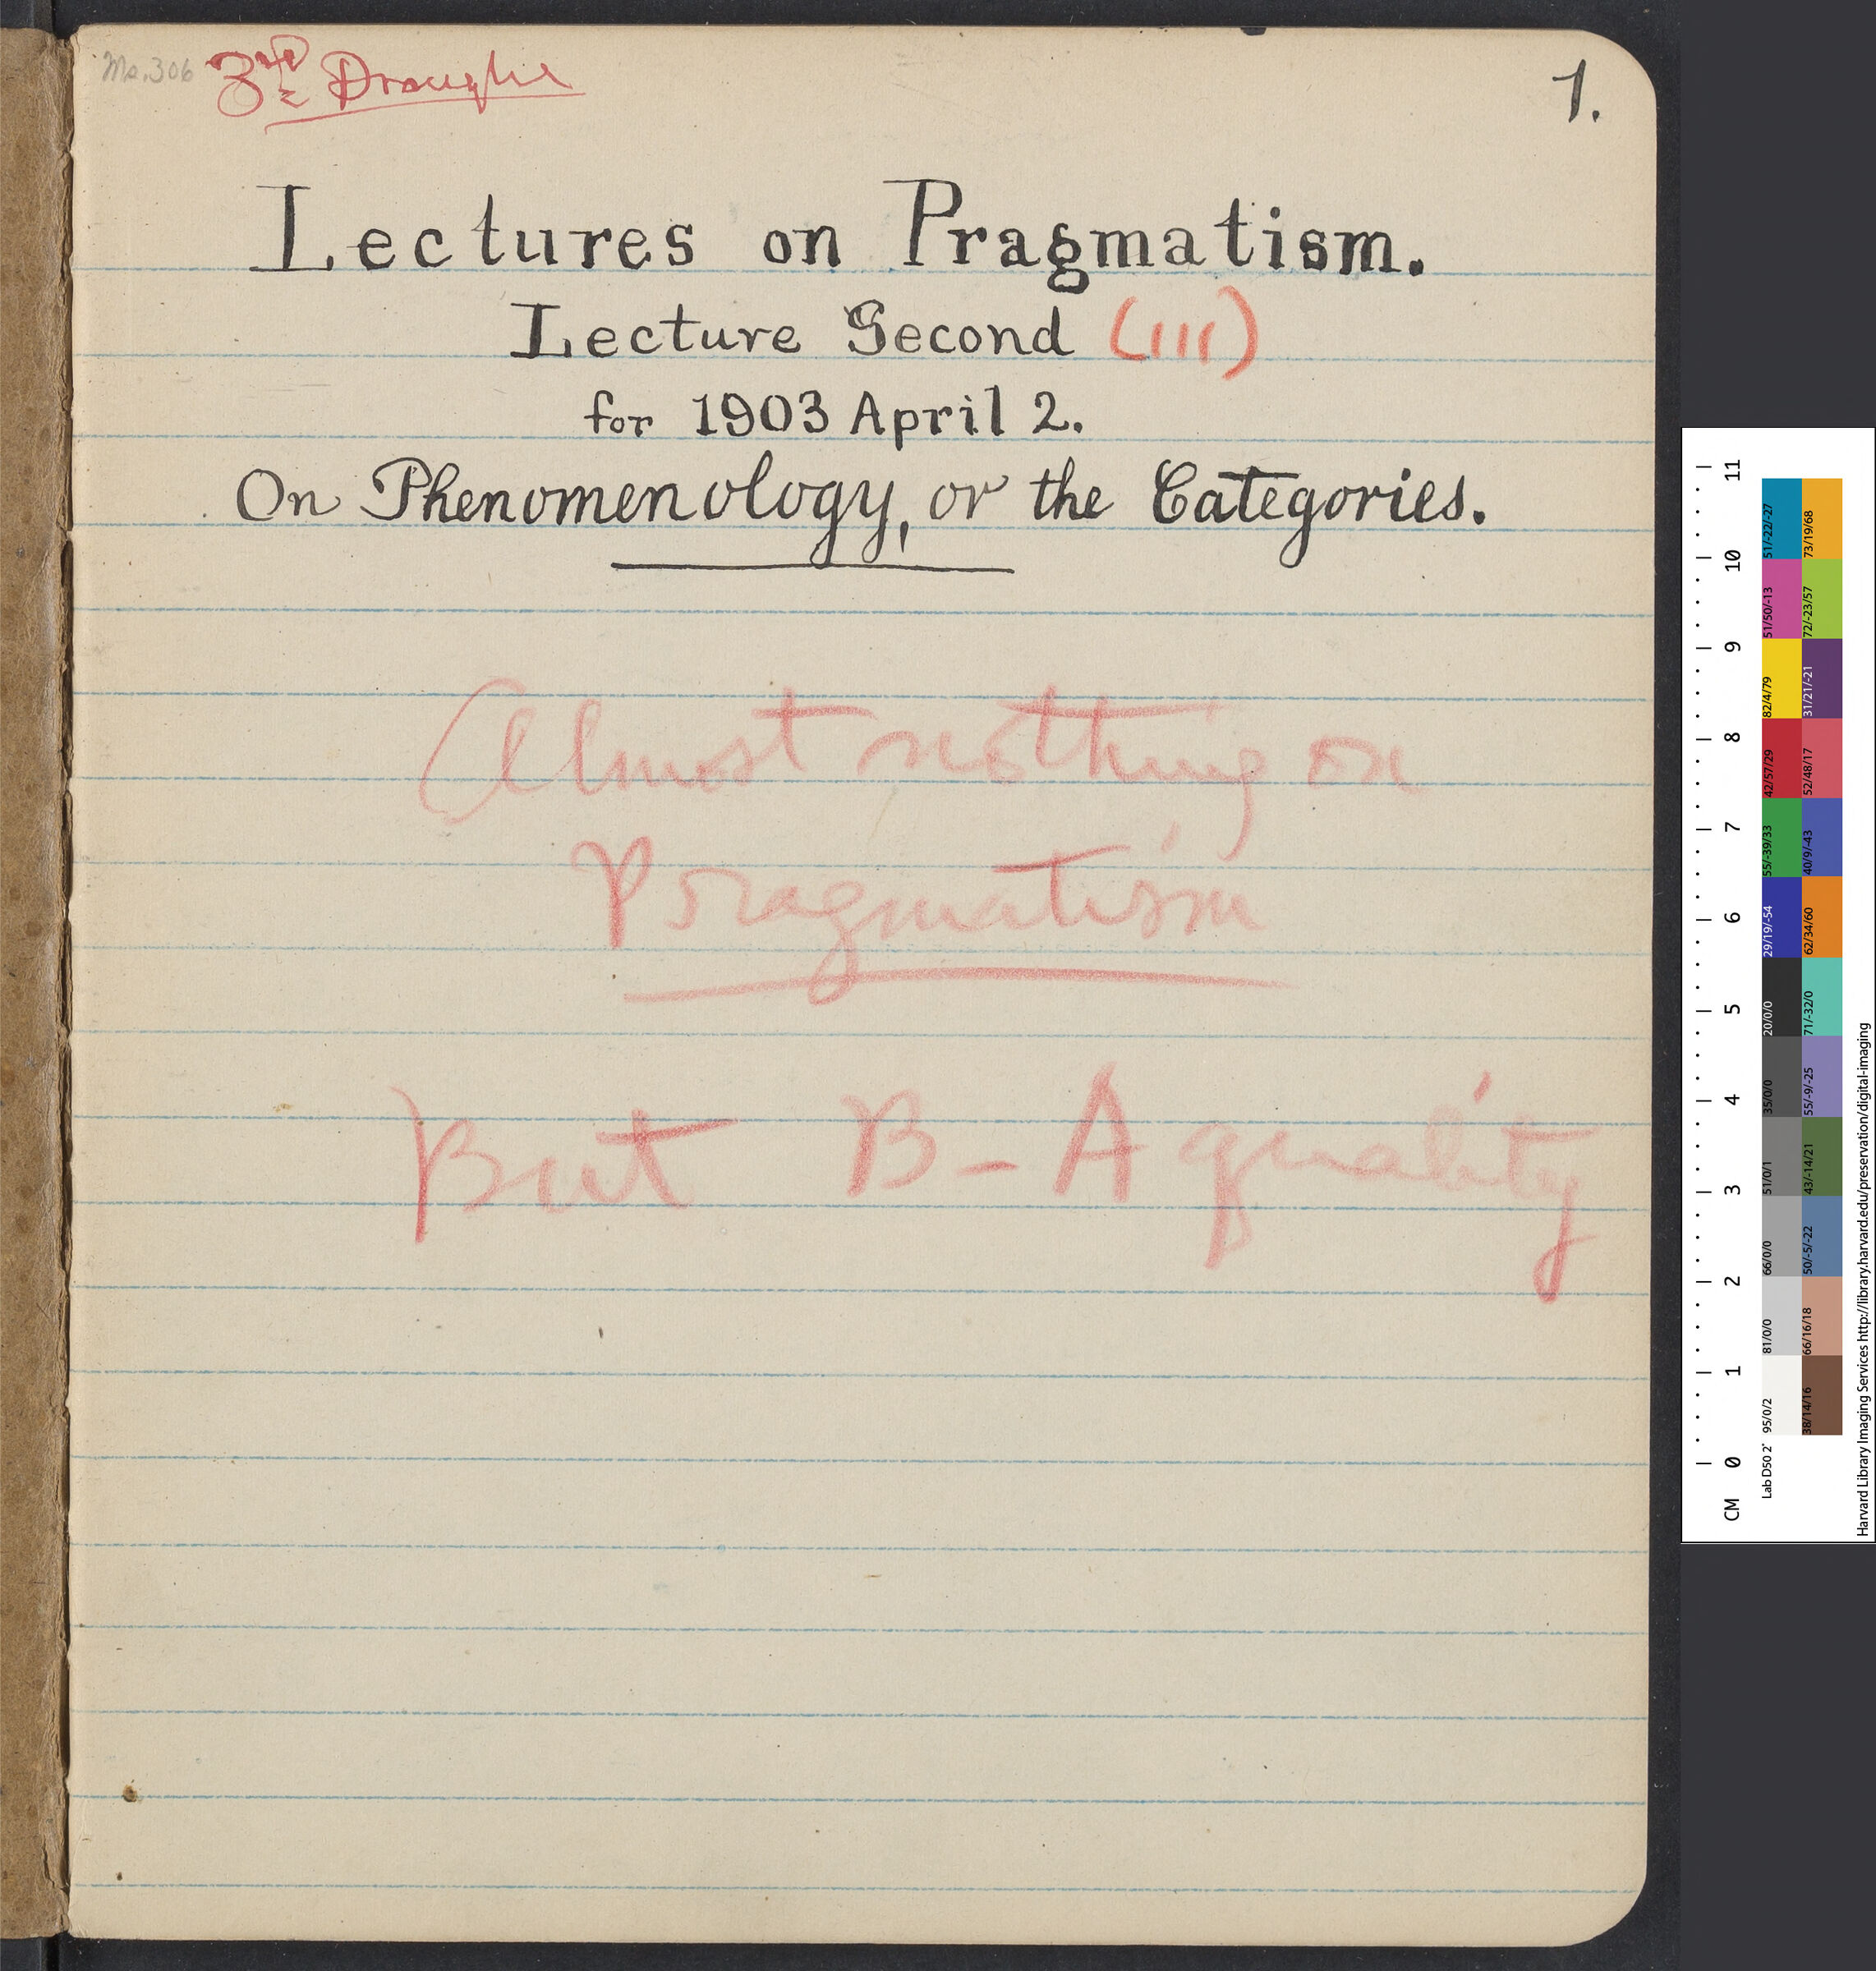 Ms. 306
3rd Draught
1.
Lectures on Pragmatism.
Lecture Second (III)
for 1903 April 2.
On Phenomenology, or the Categories.
Almost nothing on
Pragmatism
But B - A quality
CM 0 1 2 3 4 5 6 7 8 9 10 11
Lab D50 2° 95/0/2 81/0/0 66/0/0 51/0/1 35/0/0 20/0/0 29/19/-54 55/-39/33 42/57/29 82/4/79 51/50/-13 51/-22/-27
38/14/16 66/16/18 50/-5/-22 43/-14/21 55/-9/-25 71/-32/0 62/34/60 40/9/-43 52/48/17 31/21/-21 72/-23/57 73/19/68
Harvard Library Imaging Services http://library.harvard.edu/preservation/digital-imaging